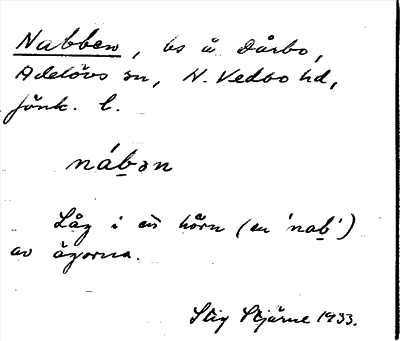 Nabben, ls å Dårbo,
Adelövs sn, N. Vedbo hd,
Jönk. l.
nábən
Låg i ett hörn (en 'nab')
av ägorna.
Stig Stjärne 1933.